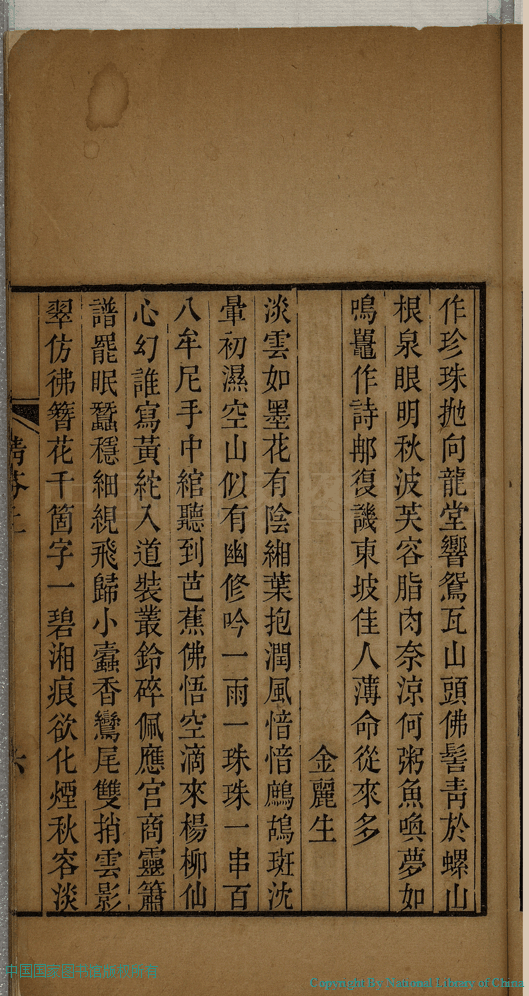 作珍珠抛向龍堂響鴛瓦山頭佛髻靑於螺山
根泉眼明秋波芙容脂肉奈涼何粥魚喚夢如
鳴鼉作詩邮復譏東坡佳人薄命從來多
金麗生
淡雲如墨花有陰緗葉抱潤風愔愔鷓鴣斑沈
暈初濕空山似有幽修吟一雨一珠珠一串百
八牟尼手中綰聽到芭蕉佛悟空滴來楊柳仙
心幻誰寫黃絁入道裝叢鈴碎佩應宮商靈簫
譜罷眠蠶穩細緄飛歸小蠹香鸞尾雙捎雲影
翠仿彿簪花千箇字一碧湘痕欲化煙秋容淡
六
中国国家图书馆版权所有
Copyright By National Library of China